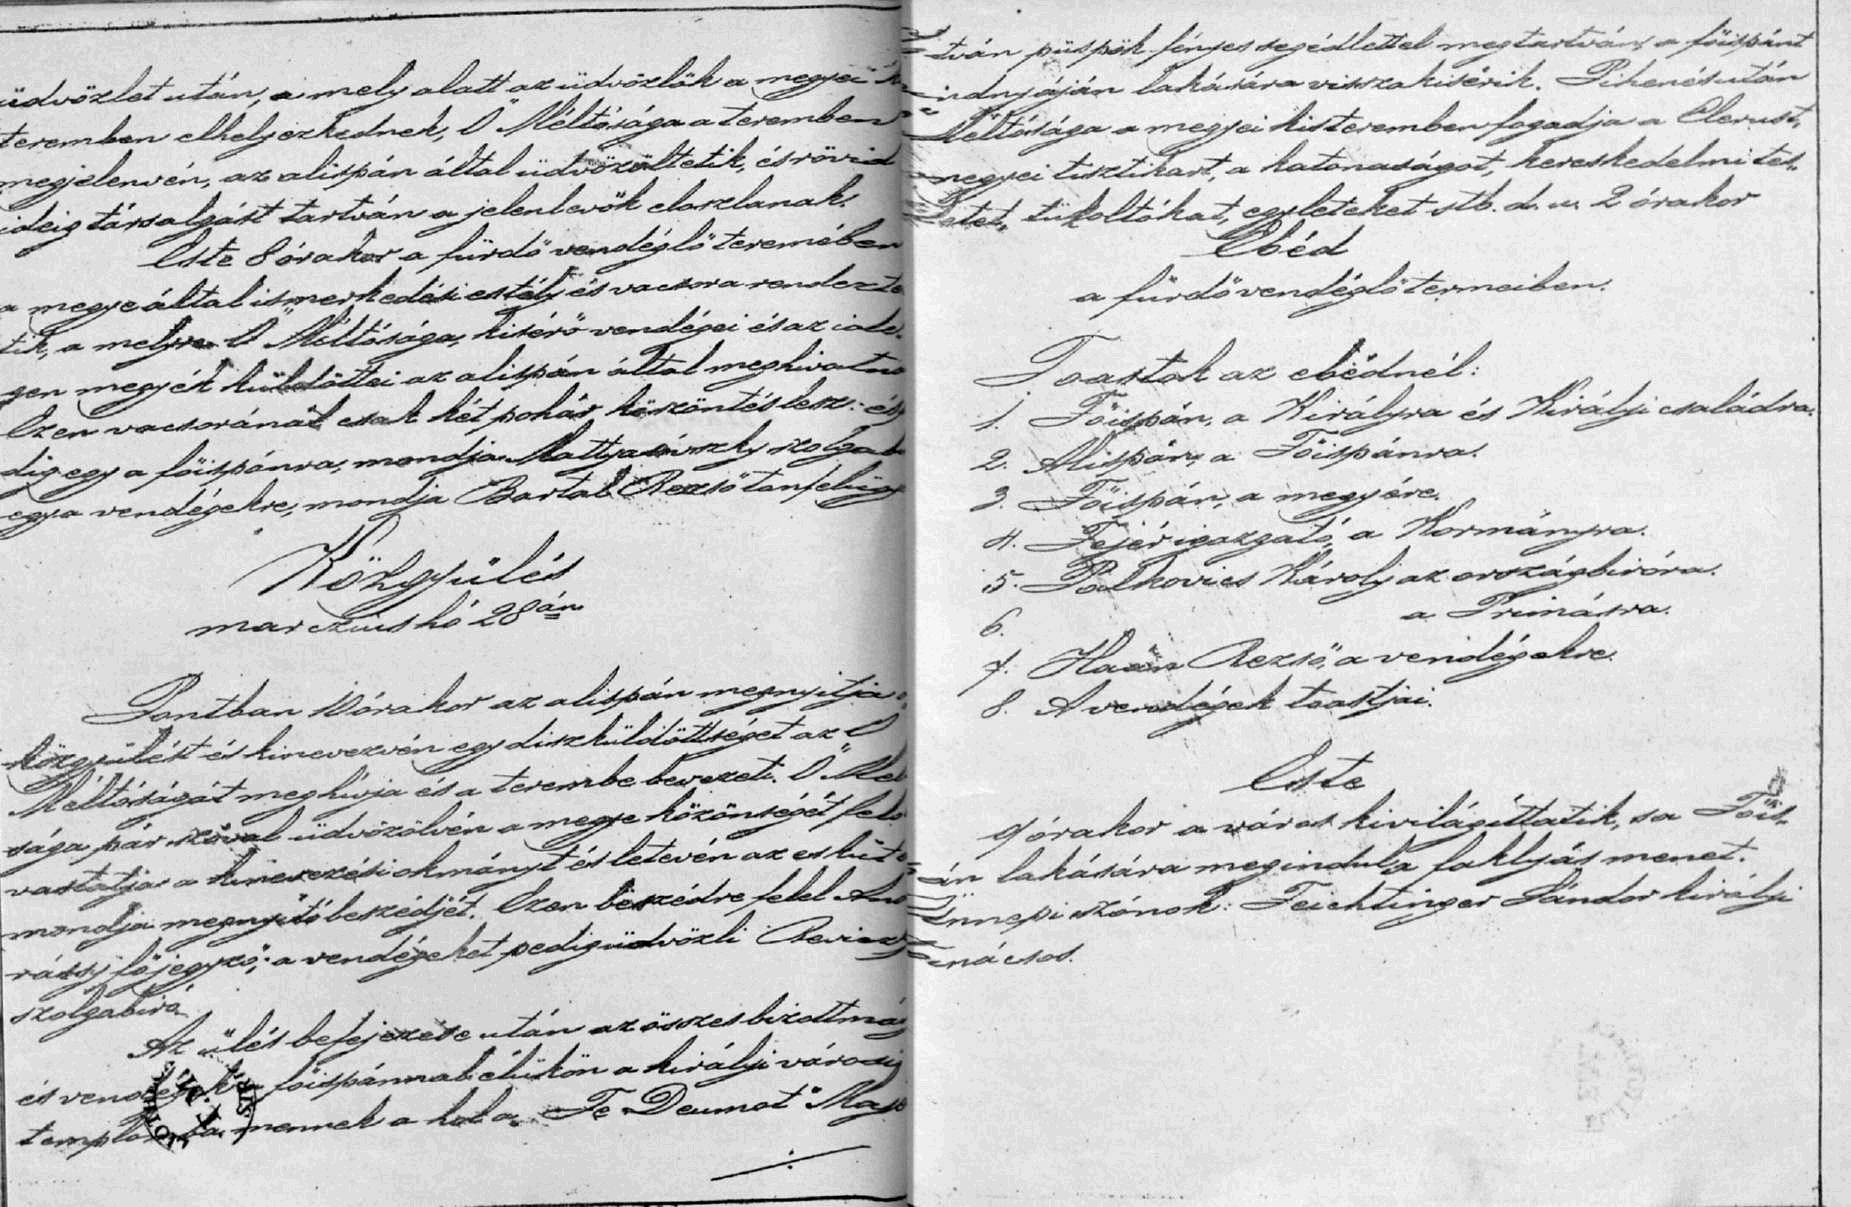 üdvözlet után, a mely alatt az üdvözlők a megyei
teremben elhelyezkednek, Ő Méltósága a teremben
megjelenvén, az alispán által üdvözöltetik, és rövid
ideig társalgást tartván a jelenlevők eloszlanak.
Este 8 órakor a fürdő vendéglő teremében
a megye által ismerkedési estély és vacsora rendezte
tik, a melyre Ő Méltósága, kisérő vendégei és az ide-
gen megyék küldöttei az alispán által meghivatna
Ezen vacsoránál csak két pohár köszöntés lesz: és
dig egy a főispánra, mondja Mattyasovszky szolgab
egy a vendégekre, mondja Bartal Rezső tanfelügy
Közgyülés
marczius hó 28án
Pontban 10 órakor az alispán megnyitja a
közgyülést és kinevezvén egy diszküldöttséget az Ő
Méltóságát meghívja és a terembe bevezeti. Ő Mél
sága pár szóval üdvözölvén a megye közönségét felo
vastatja a kinevezési okmányt és letevén az esküt
mondja megnyitó beszédjét. Ezen beszédre felel And
rássy főjegyző; a vendégeket pedig üdvözli Reviczky
szolgabiró.
Az ülés befejezése után az összes bizottmány
és vendégek a főispánnal élükön a királyi városi
templomba mennek a hol a „Te Deumot" Majo
tván püspök fényes segédlettel megtartván, a főispánt
indnyájan lakására visszakisérik. Pihenés után
Méltósága a megyei kisteremben fogadja a Clerust,
megyei tisztikart, a katonaságot, kereskedelmi tes-
tetet, tükoltókat, egyleteket stb. d. u. 2 órakor
Ebéd
a fürdő vendéglő termeiben.
Toastok az ebédnél:
1. Főispán, a Királyra és Királyi családra.
2. Alispán, a Főispánra.
3. Főispán, a megyére.
4. Fejér igazgató, a Kormányra.
5. Palkovics Károly az országbiróra.
6. a Primásra.
7. Haán Rezső, a vendégekre.
8. A vendégek toastjai.
Este
9 órakor a város kivilágíttatik, s a Főis-
án lakására megindul a fáklyás menet.
Ünnepi szónok: Feichtinger Sándor királyi
anácsos.